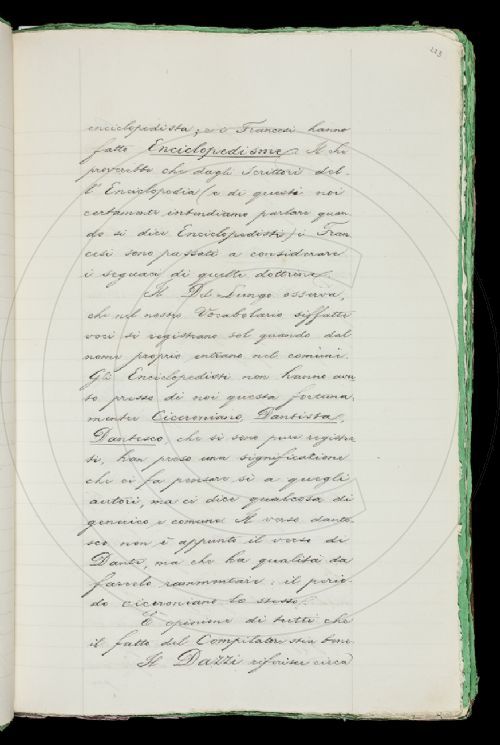 223
enciclopedista; e i Francesi hanno
fatto Enciclopedisme. Il che
proverebbe che dagli Scrittori del-
l'Enciclopedia (e di questi noi
certamente intendiamo parlare quan
do si dice Enciclopedisti) i Fran
cesi sono passati a considerare
i seguaci di quelle dottrine.
Il Del Lungo osserva,
che nel nostro Vocabolario siffatte
voci si registrano sol quando dal
nome proprio entrano nel comune.
Gli Enciclopedisti non hanno avu
to presso di noi questa fortuna,
mentre Ciceroniano, Dantista,
Dantesco, che si sono pure registra
ti, han preso una significazione
che ci fa pensare sì a quegli
autori, ma ci dice qualcosa di
generico e comune. Il verso dante-
sco non è appunto il verso di
Dante, ma che ha qualità da
farcelo rammentare: il perio-
do ciceroniano lo stesso.
È opinione di tutti che
il fatto del Compilatore stia bene.
Il Dazzi riferisce circa